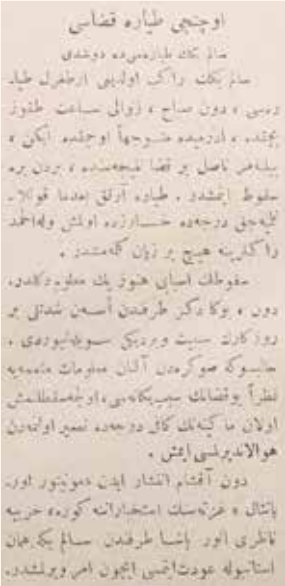 اوچنجی طیاره قضاسی
سالم بك طیاره‌سی‌ده دوشدی
سالم بكك راكب اولدیغی ارطغرل طیا-
ره‌سی ، دون صباح ، زوالی ساعت طقوز
بچقده ، ازمیده متوجهاً اوچقده ایكن ،
ناصل بر قضا نتیجه‌سنده ، بردن بره
سقوط ایتمشدر . طیاره آرتق بعدما قوللا-
نلمیه‌جق درجه‌ده خساره‌زده اولمش ولله‌الحمد
راكبلرینه هیچ بر زیان كلمه‌مشدر .
سقوطك اسبابی هنوز پك معلوم دكلدر .
دون ، طرفدن أسن شدتلی بر
روزكارك سبب ویردیكی سویله‌نیوردی .
صوكره‌دن آلنان معلومات متممه‌یه
نظراً بوقضانك سبب یكانه‌سی،
اولان ماكینه‌نك كافی درجه‌ده تعمیر اولنمه‌دن
هوالاندیرلمسی ایمش .
دون آقشام انتشار ایدن «مونیتور اور-
یانتال » غزته‌سنك استخباراتنه كوره ، حربیه
ناظری انور پاشا طرفندن سالم بكه همان
استانبوله عودت ایتمسی ایچون امر ویرلمشدر.